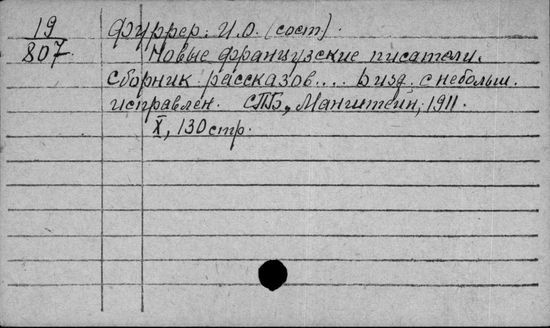 19 Фуррер. И.О. (сост).
807. Новые французские писатели.
Сборник рассказов.... 6 изд. с небольш.
исправлен. СПБ, Манштейн, 1911.
X, 130 стр.